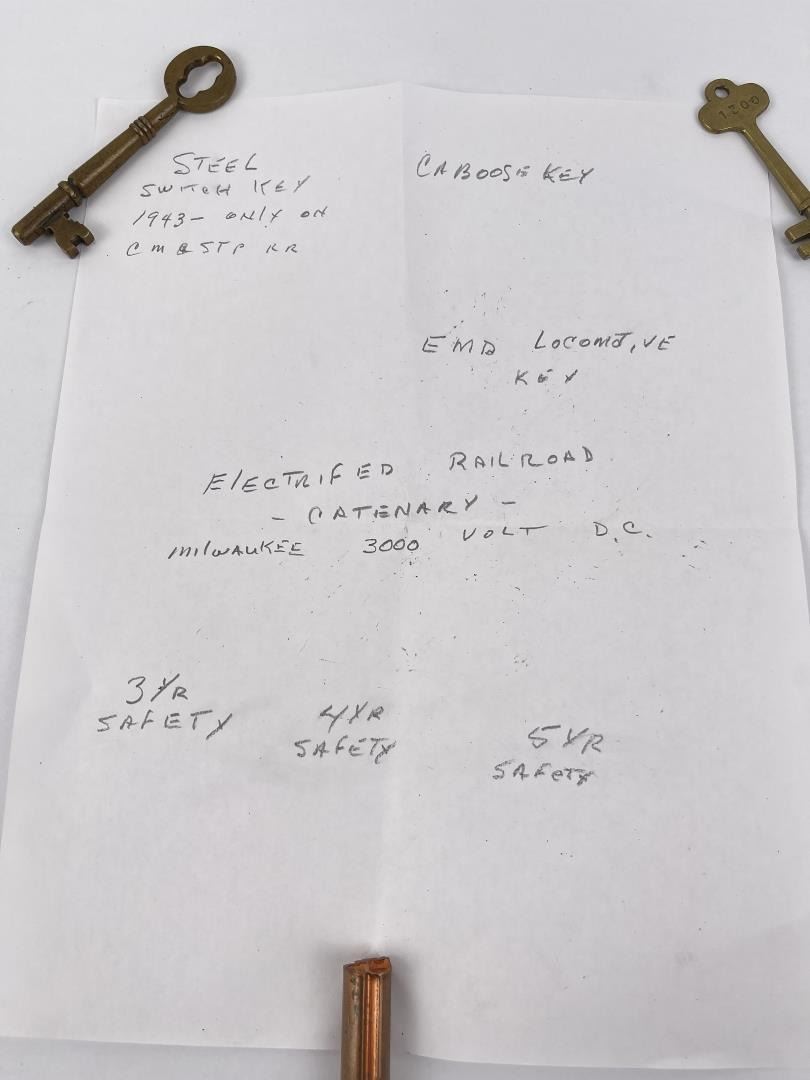 STEEL
SWITCH KEY
1943 - ONLY ON
CM&STP RR
CABOOSE KEY
1200
EMD LOCOMOTIVE
KEY
ELECTRIFIED RAILROAD
- CATENARY -
MILWAUKEE 3000 VOLT D.C.
3 YR
SAFETY
4 YR
SAFETY
5 YR
SAFETY